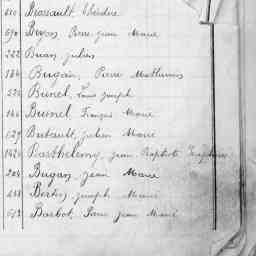 610 Brossault, Théodore
690 Bevon, Pierre Jean Marie
222 Buan, Julien
184 Bugain, Pierre Mathurin
524 Bunel, Louis Joseph
144 Bunel, François Marie
529 Bubault, Julien Marie
1424 Barthélemy, Jean Baptiste
204 Bugan, Jean Marie
488 Bertin, Joseph Marie
613 Barbot, Pierre Jean Marie